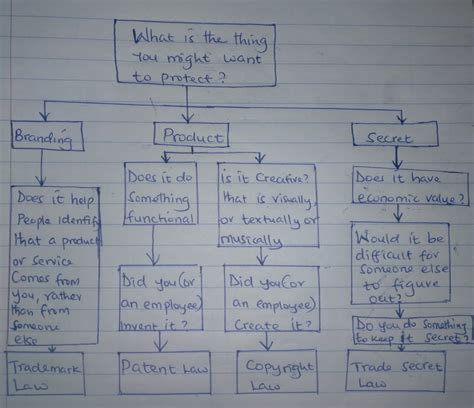 What is the thing
You might want
to protect?
Branding
Product
Secret
Does it help
People Identify
that a product
or service
Comes from
you, rather
than from
someone
else
Does it do
Something
functional
is it Creative?
that is visually
or textually or
musically
Does it have
economic value?
Would it be
difficult for
someone else
to figure
out?
Did you (or
an employee)
invent it?
Did you (or
an employee)
Create it?
Do you do something
to keep it secret?
Trademark
Law
Patent Law
Copyright
Law
Trade Secret
Law